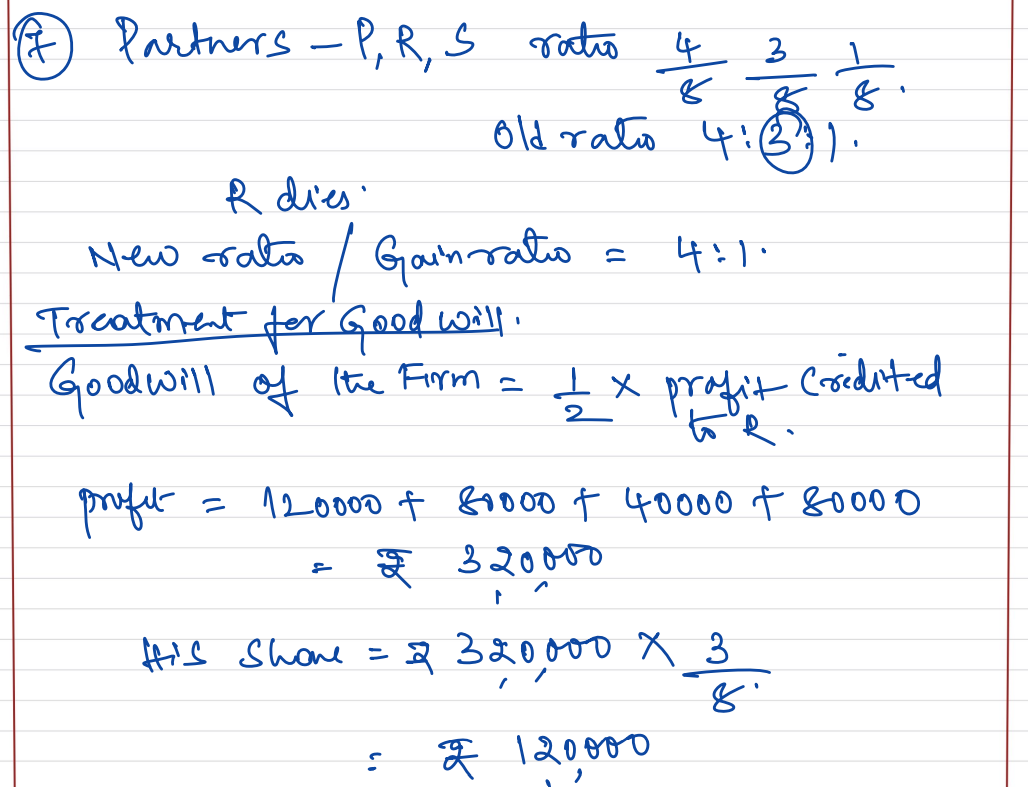 7 Partners - P, R, S ratio 4/8 3/8 1/8.
Old ratio 4:3:1.
R dies.
New ratio / Gain ratio = 4:1.
Treatment for Goodwill.
Goodwill of the Firm = 1/2 x profit Credited
to R.
profit = 120000 + 80000 + 40000 + 80000
= ₹ 320000
His Share = ₹ 320,000 x 3/8.
= ₹ 120,000